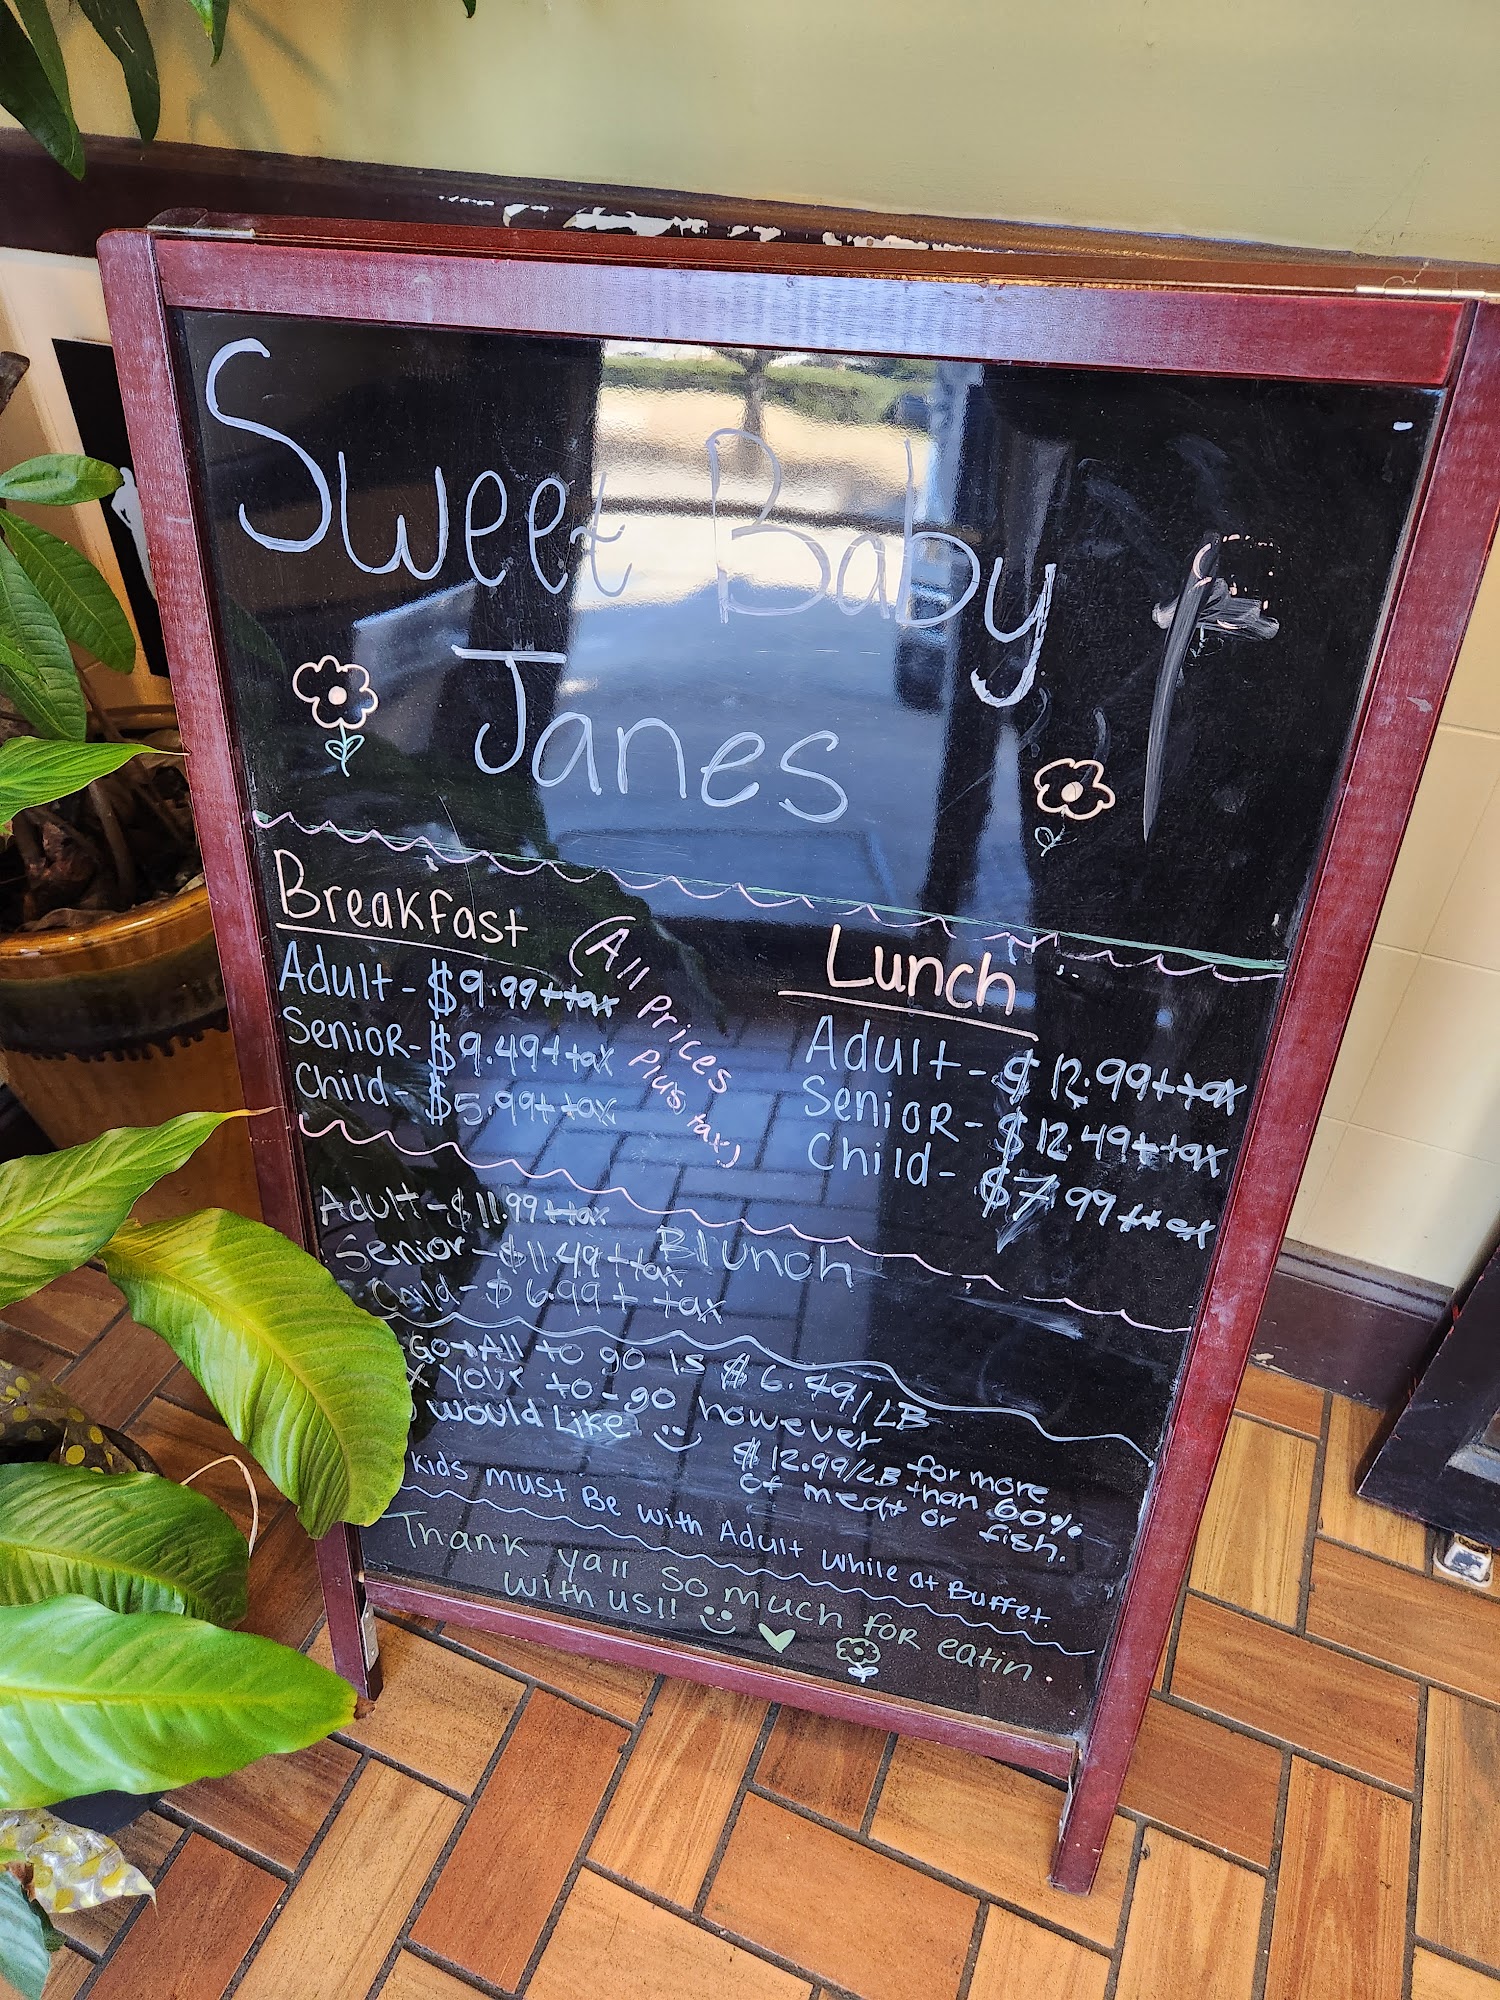 Sweet Baby
Janes
Breakfast
Adult - $9.99 + tax
Senior - $9.49 + tax
Child - $5.99 + tax
(All prices
Plus tax)
Lunch
Adult - $12.99 + tax
Senior - $12.49 + tax
Child - $7.99 + tax
Brunch
Adult - $11.99 + tax
Senior - $11.49 + tax
Child - $6.99 + tax
All to go is $6.49/LB
your to-go however
would Like
$12.99/LB for more
than 60%
of meat or fish.
kids must Be with Adult while at Buffet.
Thank yall so much for eatin
with us!!